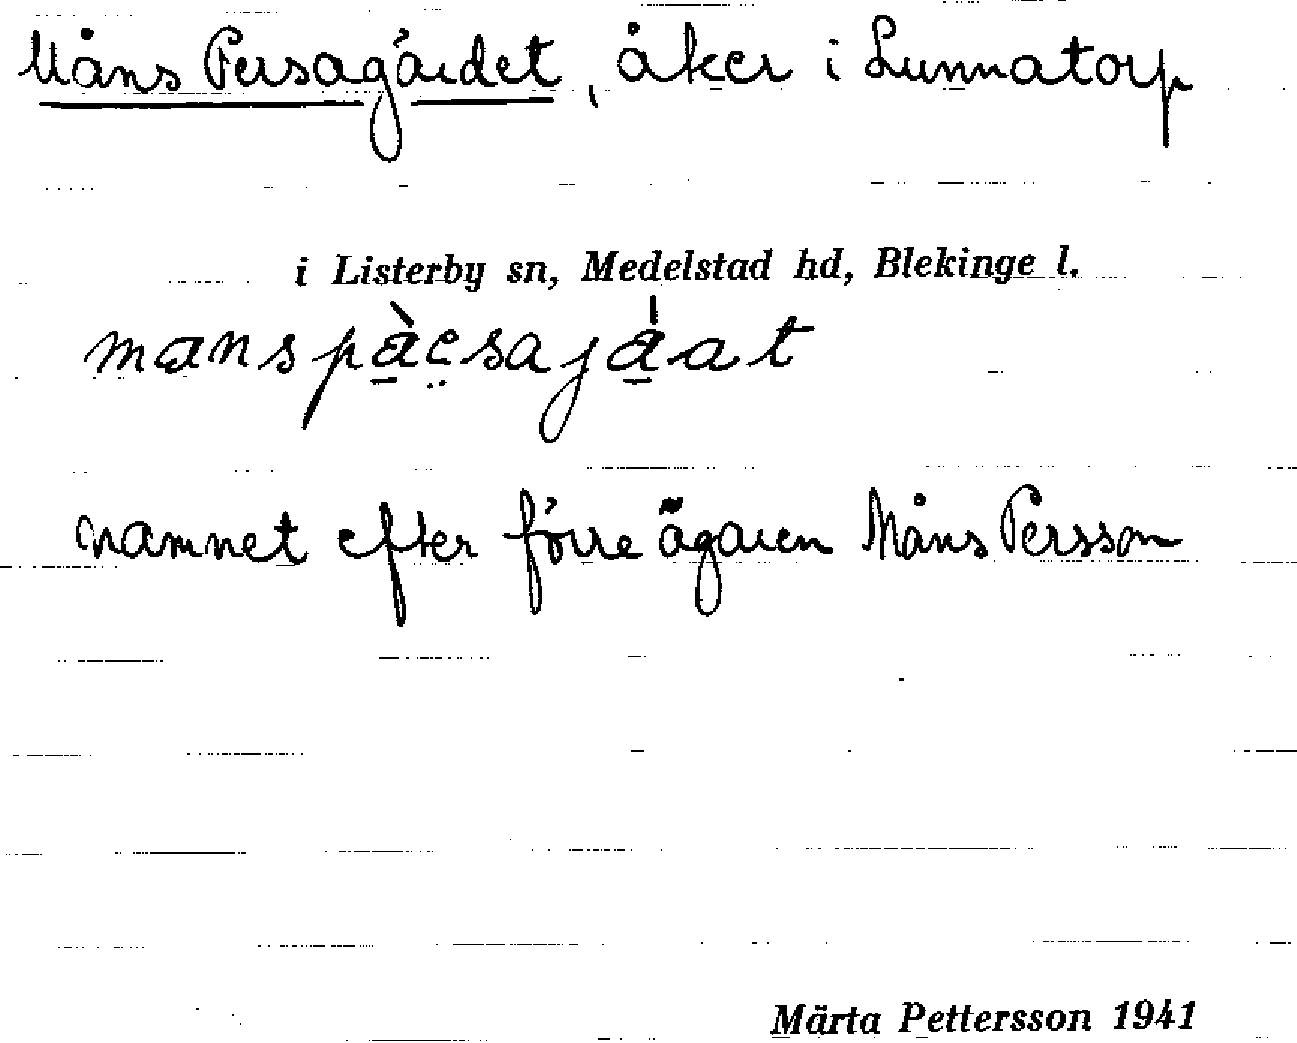 Måns Persagärdet, åker i Lunnatorp
i Listerby sn, Medelstad hd, Blekinge l.
namnet efter förre ägaren Måns Persson
Märta Pettersson 1941